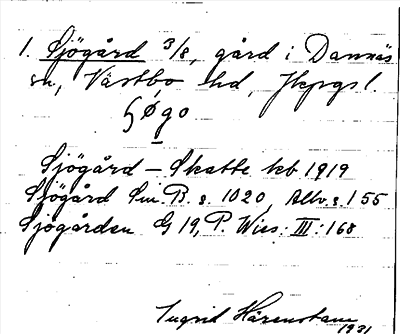 1. Sjögård 3/8, gård i Dannäs
sn, Västbo hd, Jkpgs l.
Sjögård – Skatte kb 1919
Sjögård Sm. B. s. 1020, Allv. s. 155
Sjögården G 19, P. Wies: III: 168
Ingrid Hårenstam
1931